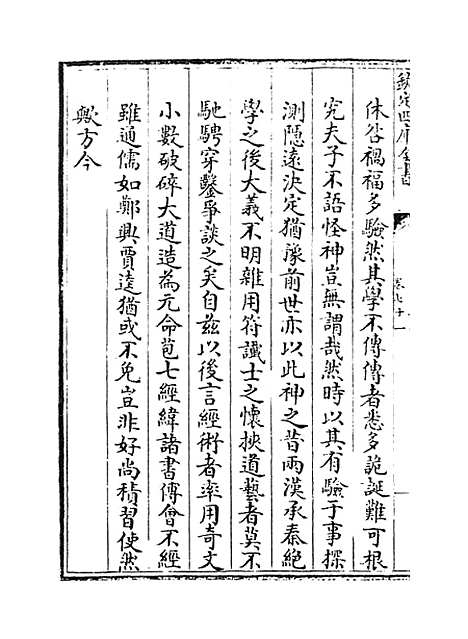 欽定四庫全書
卷七十一
休咎禍福多驗然其學不傳傳者悉多詭誕難可根
究夫子不語怪神豈無謂哉然時以其有驗于事探
測隱遠決定猶豫前世亦以此神之昔兩漢承秦絕
學之後大義不明雜用符讖士之懷挾道藝者莫不
馳騁穿鑿爭談之矣自茲以後言經術者率用奇文
小數破碎大道造為元命苞七經緯諸書傅會不經
雖通儒如鄭興賈逵猶或不免豈非好尚積習使然
歟方今